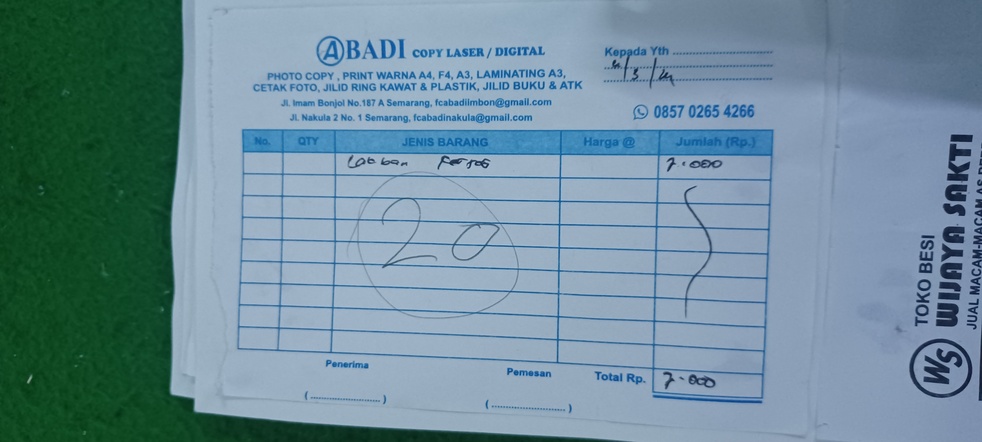 ABADI COPY LASER / DIGITAL
PHOTO COPY , PRINT WARNA A4, F4, A3, LAMINATING A3,
CETAK FOTO, JILID RING KAWAT & PLASTIK, JILID BUKU & ATK
Jl. Imam Bonjol No.187 A Semarang, fcabadiimbon@gmail.com
Jl. Nakula 2 No. 1 Semarang, fcabadinakula@gmail.com
Kepada Yth
0857 0265 4266
No. QTY JENIS BARANG Harga @ Jumlah (Rp.)
Lakban 7.000
20
Penerima
Pemesan
Total Rp. 7.000
(........................)
(........................)
TOKO BESI
WS WIJAYA SAKTI
JUAL MACAM-MACAM